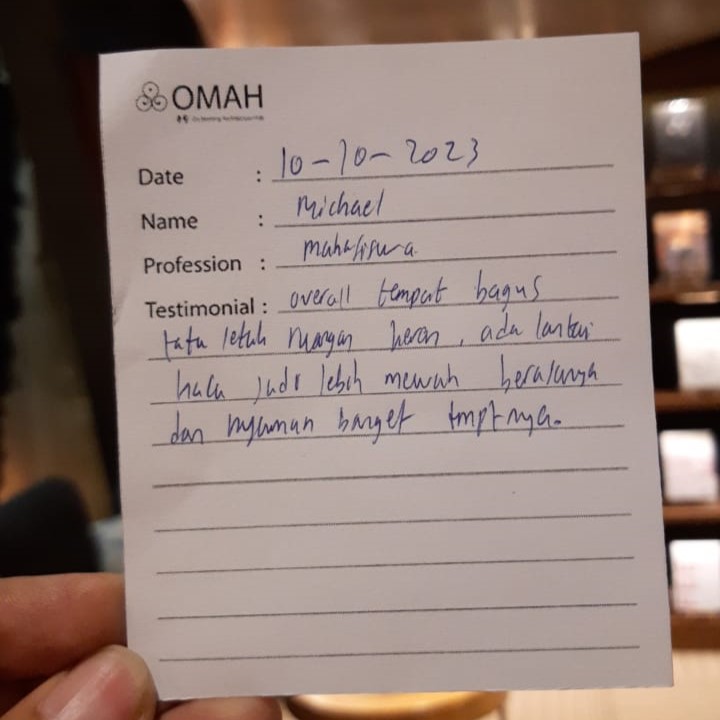 OMAH
Date : 10-10-2023
Name : Michael
Profession : mahasiswa
Testimonial : overall tempat bagus
tata letak ruangan keren, ada lantai
kaca jadi lebih mewah berasanya
dan nyaman banget tmptnya.